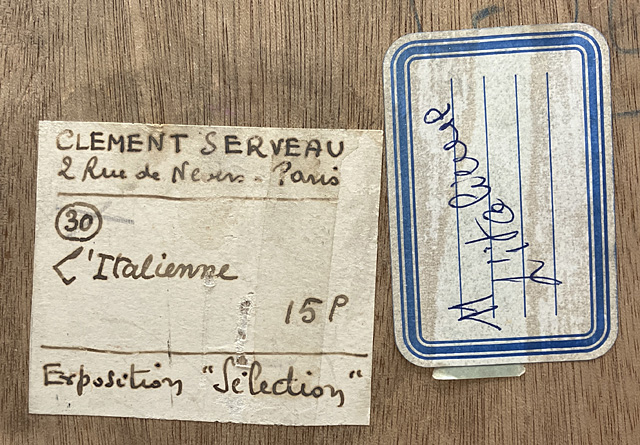 CLEMENT SERVEAU
2 Rue de Nevers - Paris
30
L'Italienne
15 P
Exposition "Sélection"